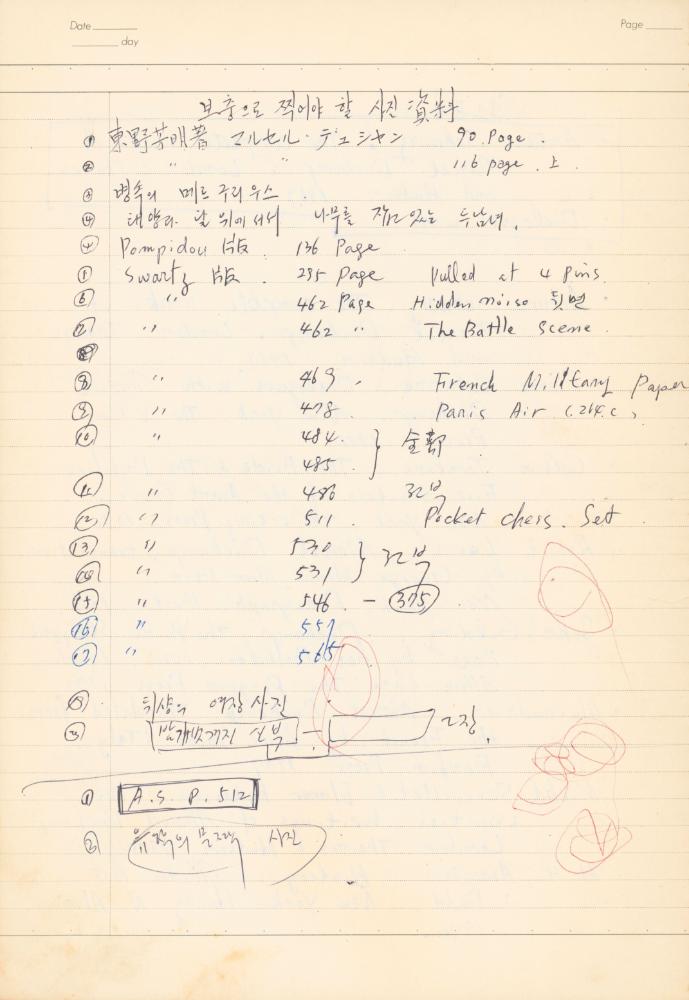 Date
Page
day
보충으로 찍어야 할 사진 資料
① 東野芳明著 マルセル・デュシャン 90. Page.
② 〃 〃 116 page. 上.
③ 병속의 메르쿠리우스
④ 태양과 달 위에 서서 나무를 잡고 있는 두 남녀.
④ Pompidou 版. 136 Page
① Swartz 版. 295 Page Pulled at 4 Pins.
⑥ 〃 462 Page Hidden noise 뒷면
⑦ 〃 462 〃 The Battle Scene.
⑧ 〃 469 French Military Paper
⑨ 〃 478. Paris Air
⑩ 〃 484. } 全部
485.
⑪ 〃 486
⑫ 〃 511. Pocket chess. Set
⑬ 〃 530 }
⑭ 〃 531
⑮ 〃 546 - 375
⑯ 〃 557
⑰ 〃 565
뒤샹의 여장 사진
발가벗겨진 신부 - 2장.
① A. S. P. 512
② 사진